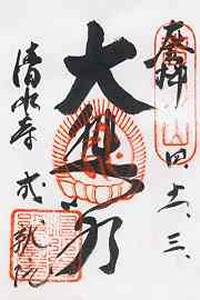 奉拝 四、十一、三、
大悲閣
清水寺 成就院